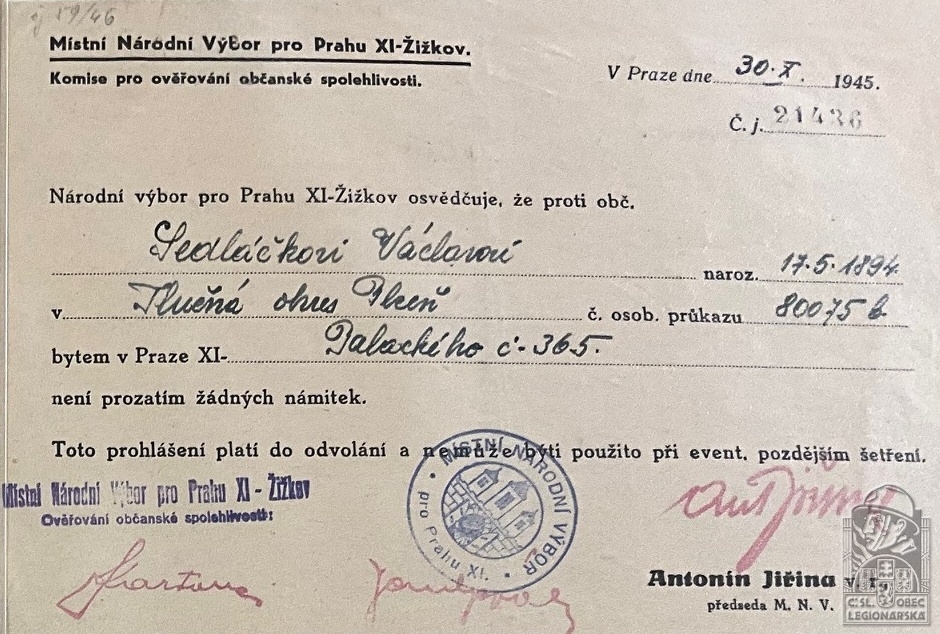 j 59/46
Místní Národní Výbor pro Prahu XI-Žižkov.
Komise pro ověřování občanské spolehlivosti.
V Praze dne 30.X. 1945.
Č. j. 21436
Národní výbor pro Prahu XI-Žižkov osvědčuje, že proti obč.
Sedláčkovi Václavovi naroz. 17.5.1894
v Tlučná okres Plzeň č. osob. průkazu 80075 b
bytem v Praze XI- Palackého č. 365.
není prozatím žádných námitek.
Toto prohlášení platí do odvolání a nemůže býti použito při event. pozdějším šetření.
Místní Národní Výbor pro Prahu XI - Žižkov
Ověřování občanské spolehlivosti:
MÍSTNÍ NÁRODNÍ VÝBOR
pro Prahu XI.
Ant Jiřina
Antonín Jiřina v. r.,
předseda M. N. V.
ČSL. OBEC
LEGIONÁŘSKÁ